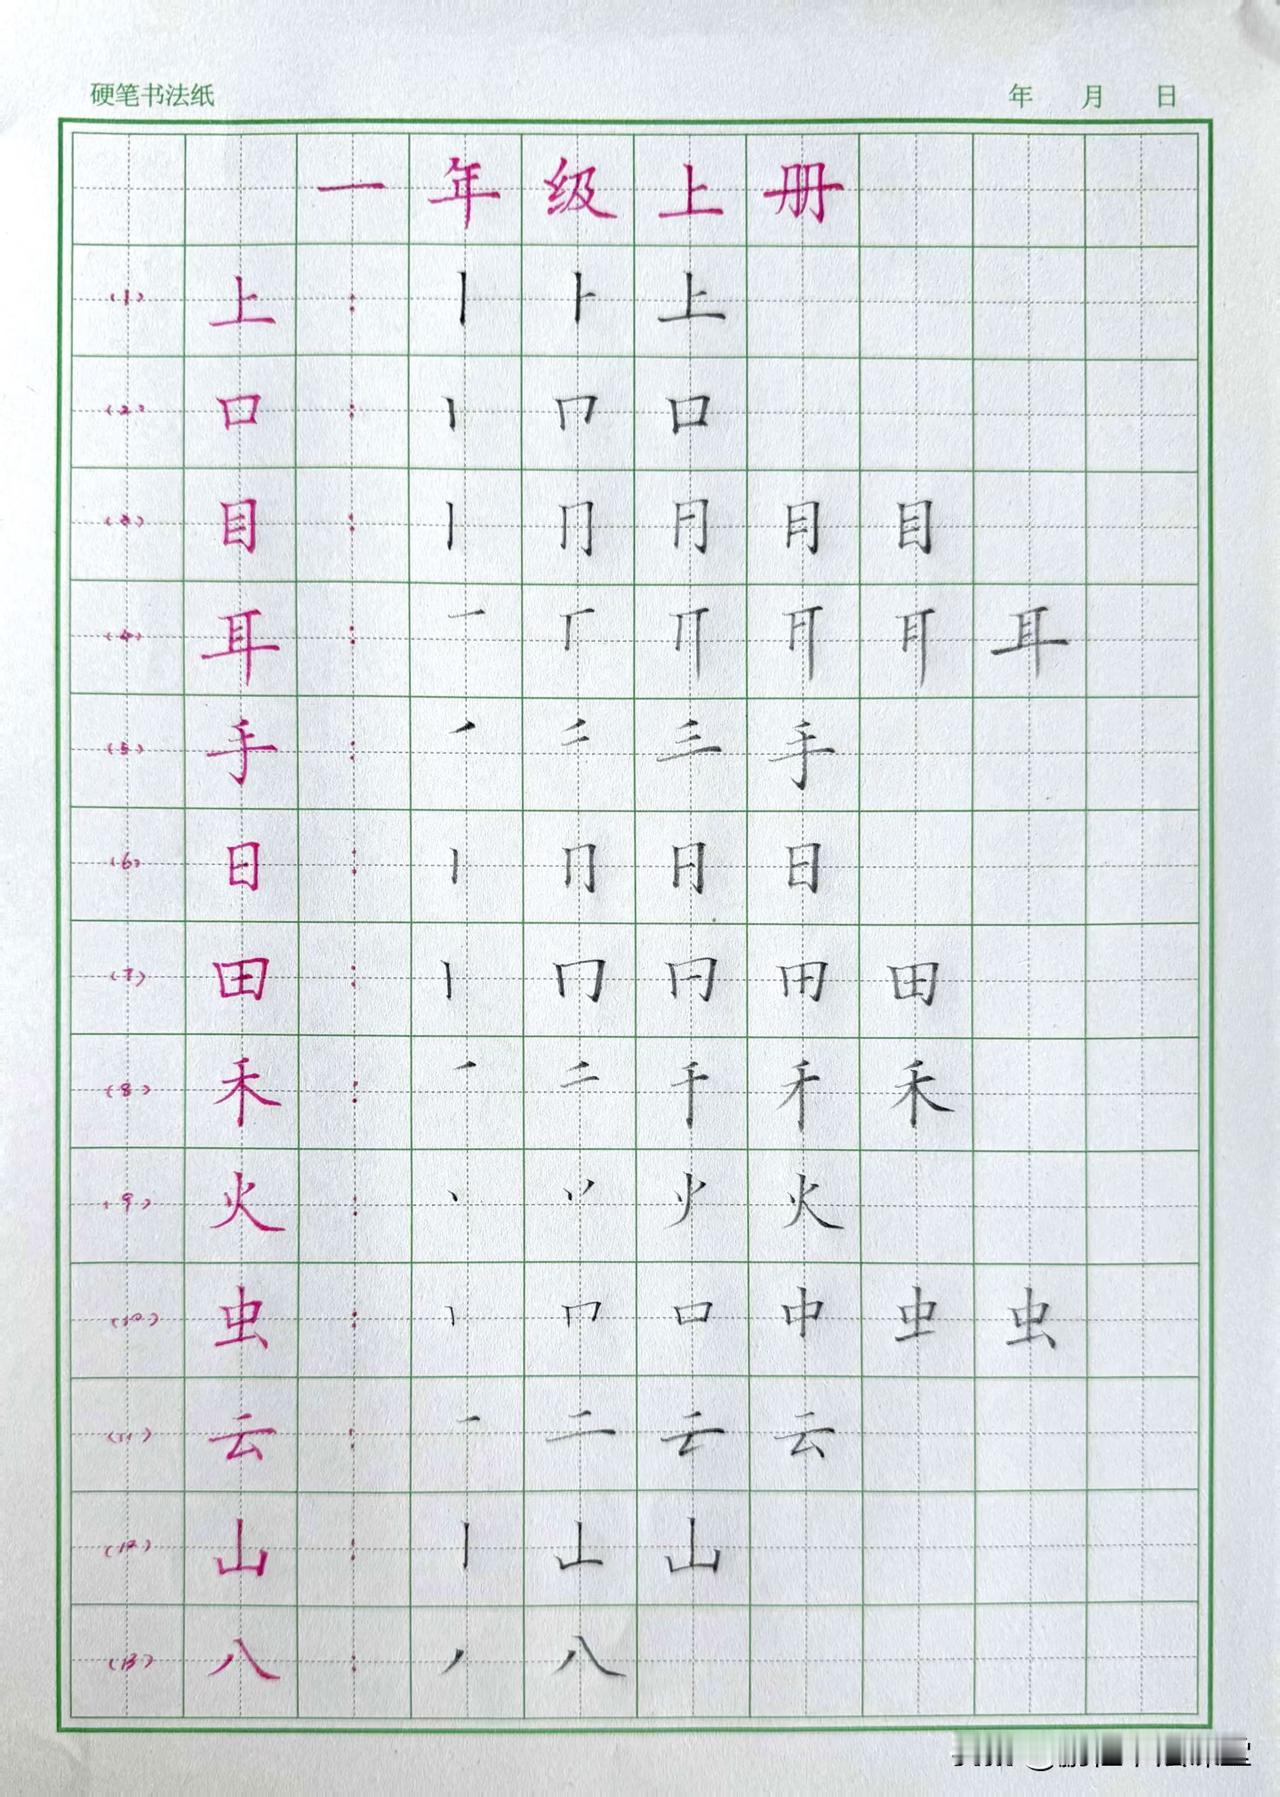 硬笔书法纸 年 月 日
一年级上册
(1) 上 : 丨 ⺊ 上
(2) 口 : 丨 冂 口
(3) 目 : 丨 冂 月 目
(4) 耳 : 一 丅 耳
(5) 手 : ノ 三 手
(6) 日 : 丨 冂 日 日
(7) 田 : 丨 冂 田
(8) 禾 : 一 二 千 禾
(9) 火 : 丶 丷 火
(10) 虫 : 丨 冂 口 中 虫
(11) 云 : 一 二 云 云
(12) 山 : 丨 山
(13) 八 : ノ 八